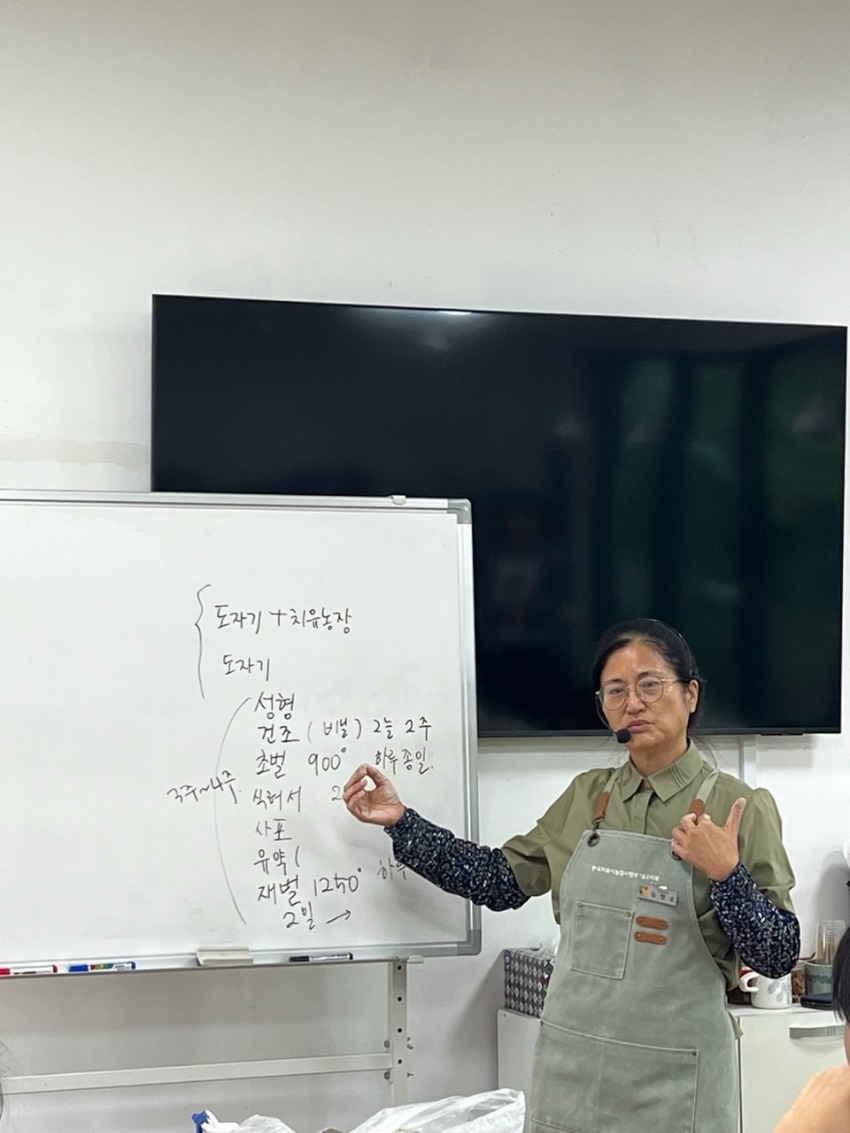 도자기 + 치유농장
도자기
성형
건조 (비닐) 2늘 2주
초벌 900° 하루종일.
3주~4주.
식혀서 2
사포
유약 (
재벌 1250° 하루
2일 →